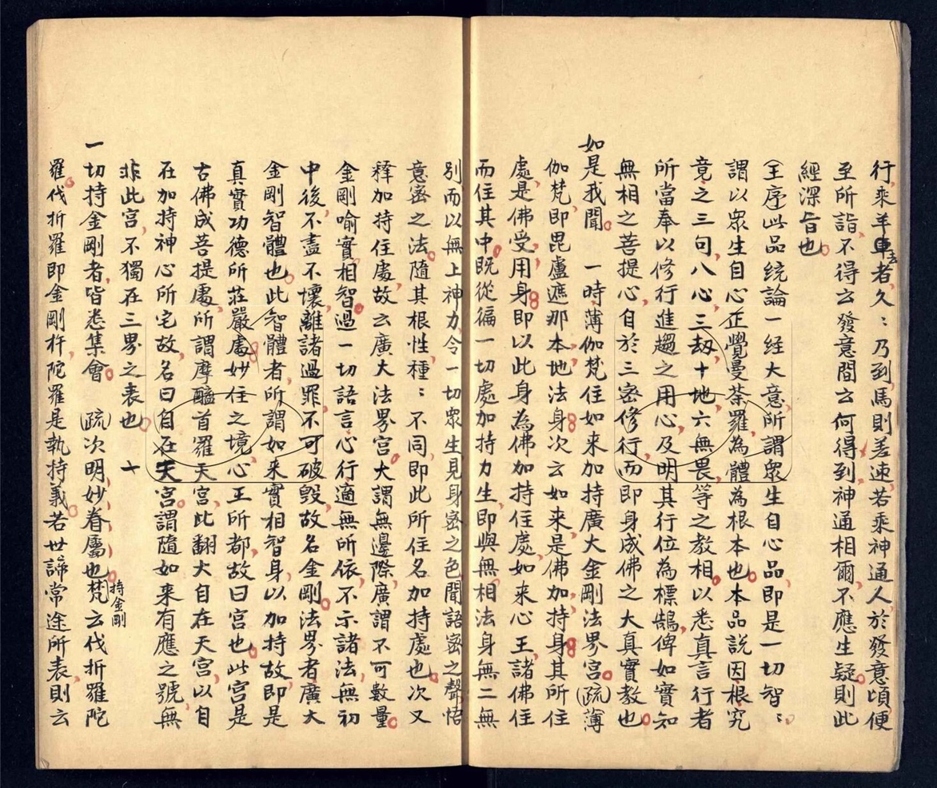 行乘羊車去者久〻乃到馬則差速若乘神通人於發意頃便
至所詣不得云發意間云何得到神通相爾不應生疑則此
經深旨也
全序此品統論一經大意所謂眾生自心品即是一切智〻
謂以眾生自心正覺曼荼羅為體為根本也本品說因根究
竟之三句八心三劫十地六無畏等之教相以悉真言行者
所當奉以修行進趨之用心及明其行位為標鵠俾如實知
無相之菩提心自於三密修行而即身成佛之大真實教也
如是我聞 一時薄伽梵住如來加持廣大金剛法界宮(疏)薄
伽梵即毘盧遮那本地法身次云如來是佛加持身其所住
處是佛受用身即以此身為佛加持住處如來心王諸佛住
而住其中既從徧一切處加持力生即與無相法身無二無
別而以無上神力令一切眾生見身密之色聞語密之聲悟
意密之法隨其根性種〻不同即此所住名加持處也次又
釋加持住處故云廣大法界宮大謂無邊際廣謂不可數量
金剛喻實相智過一切語言心行適無所依不示諸法無初
中後不盡不壞離諸過罪不可破毀故名金剛法界者廣大
金剛智體也此智體者所謂如來實相智身以加持故即是
真實功德所莊嚴處妙住之境心王所都故曰宮也此宮是
古佛成菩提處所謂摩醯首羅天宮此翻大自在天宮以自
在加持神心所宅故名曰自在天宮謂隨如來有應之號無
非此宮不獨在三界之表也 十
一切持金剛者皆悉集會 (疏)次明妙眷屬也梵持金剛云伐折羅陀
羅伐折羅即金剛杵陀羅是執持義若世諦常途所表則云